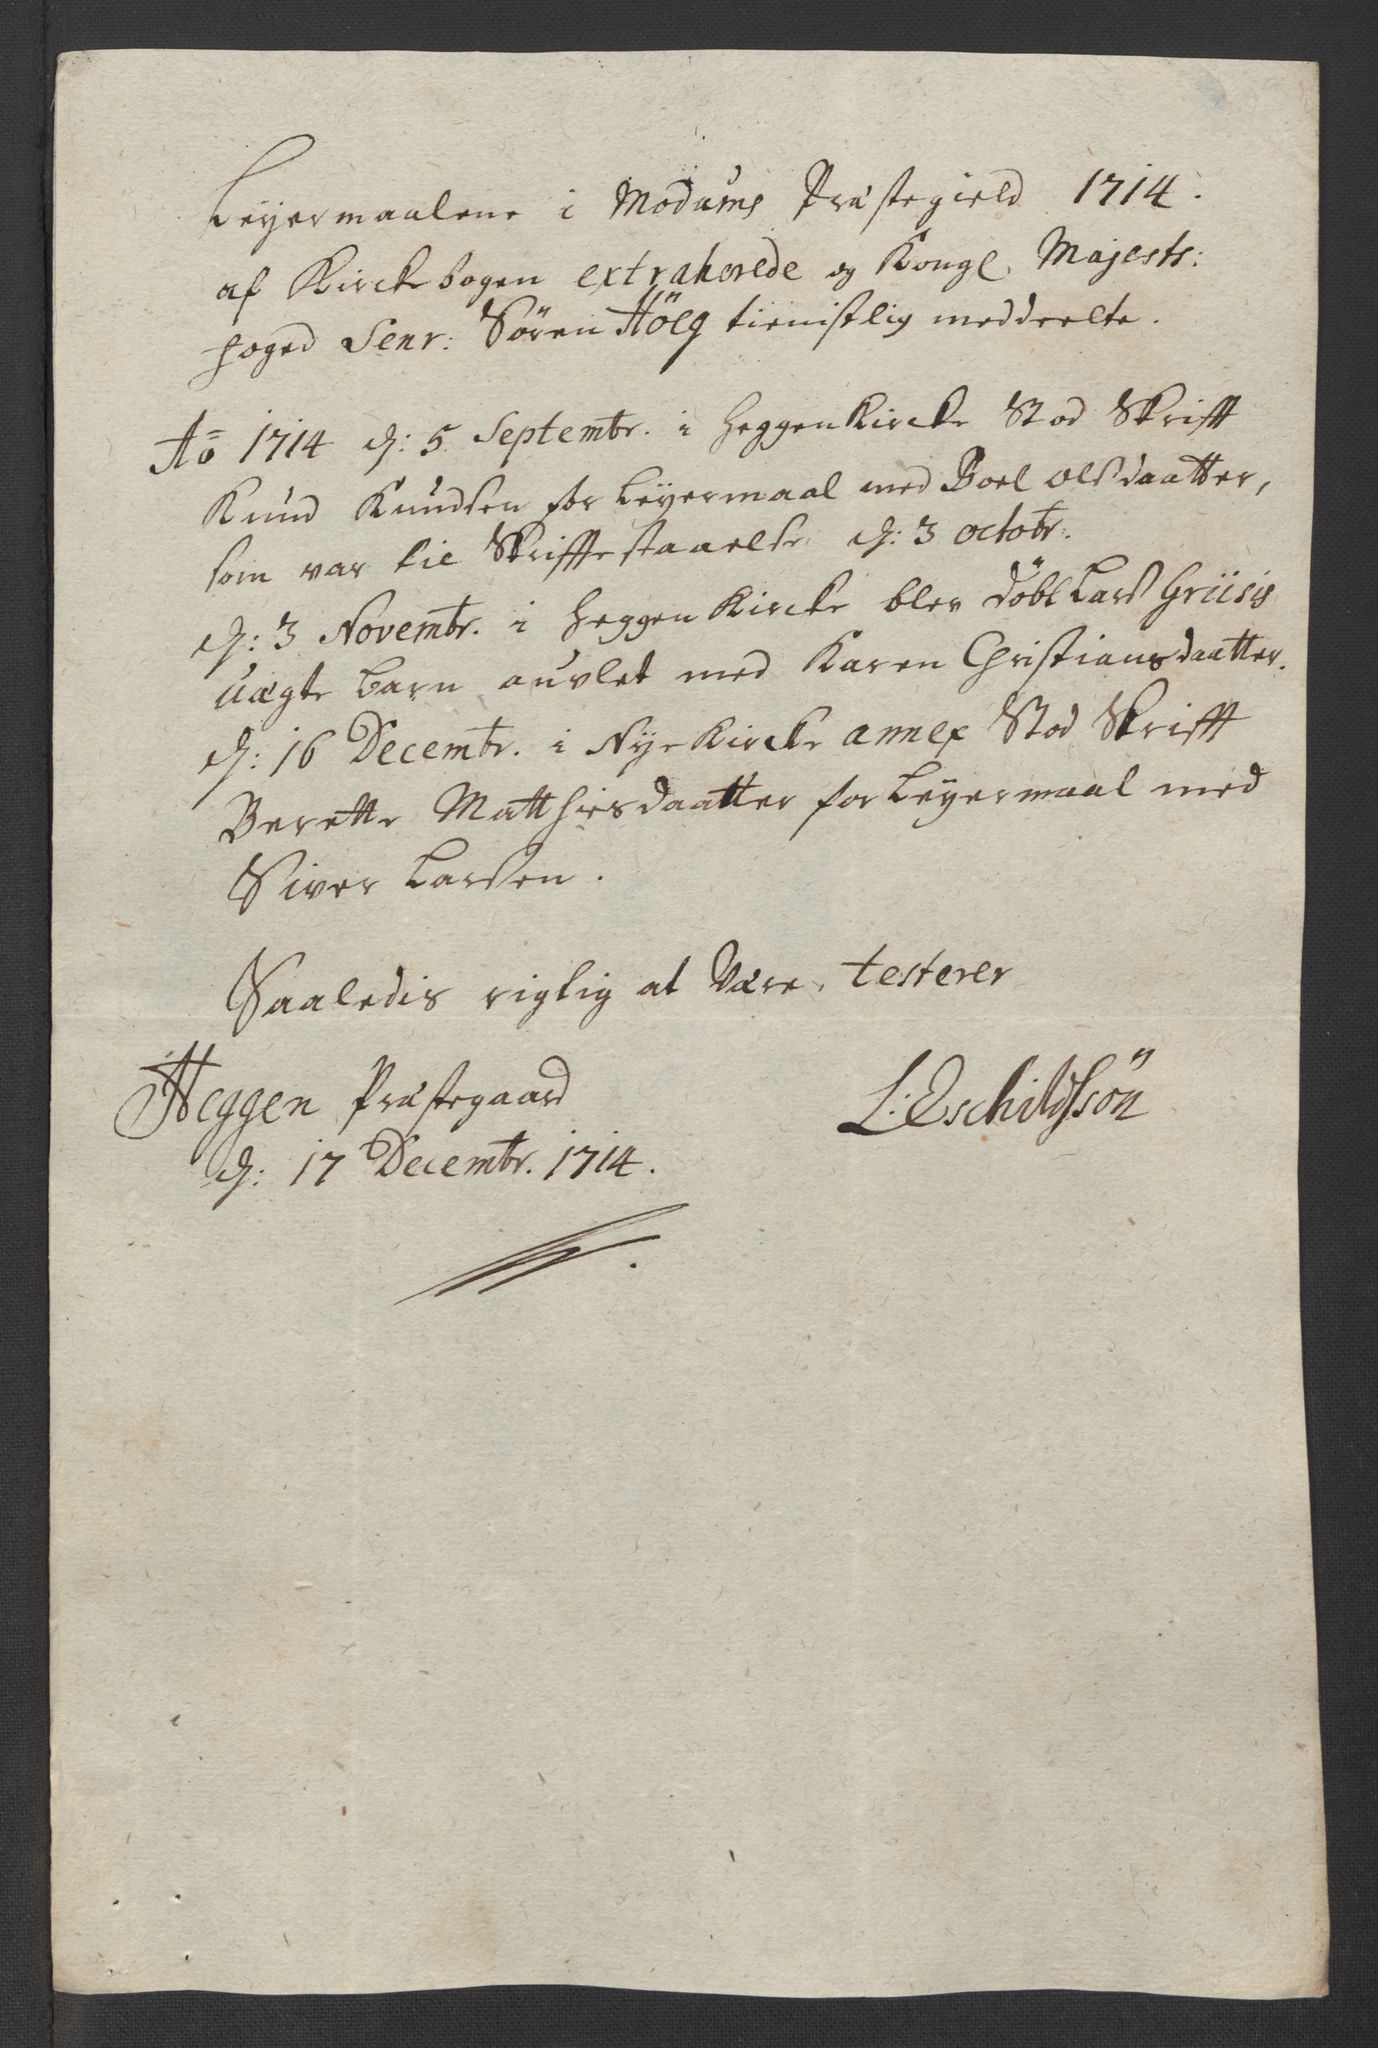 Leyermaalene i Modums Præstegield 1714.
af Kirckebogen extraherede og Kongl. Majests:
foged Senr: Sören Höeg tienistlig meddeelte.
Ao 1714 d: 5 Septembr. i Heggen Kircke Stod Skrifft
Knud Knudsen for Leyermaal med Boel Olsdaatter,
som var til Skrifftestaaelse d: 3 octobr.
d: 3 Novembr. i Heggen Kircke blev döbt Lars Griisis
uægte barn auvlet med Karen Christiansdaatter.
d: 16 Decembr. i Nye Kircke annex Stod Skrifft
Berette Matthiesdaatter for Leyermaal med
Siver Larsen.
Saaledis rigtig at være, testerer
Heggen Præstegaard
d: 17 Decembr. 1714.
L: Eschildssön